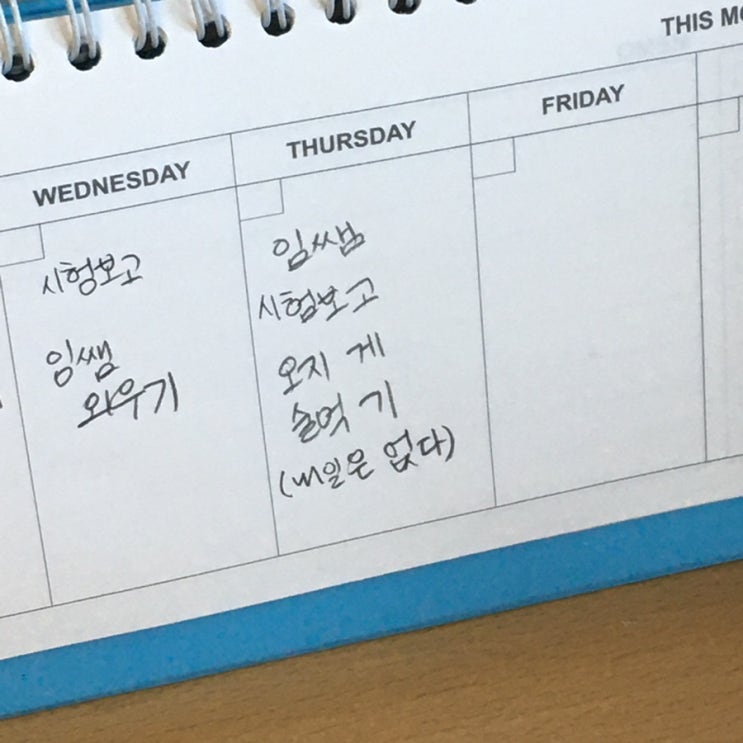 THIS MO
WEDNESDAY
THURSDAY
FRIDAY
시험보고
임쌤
외우기
임쌤
시험보고
오지 게
술먹 기
(내일은 없다)